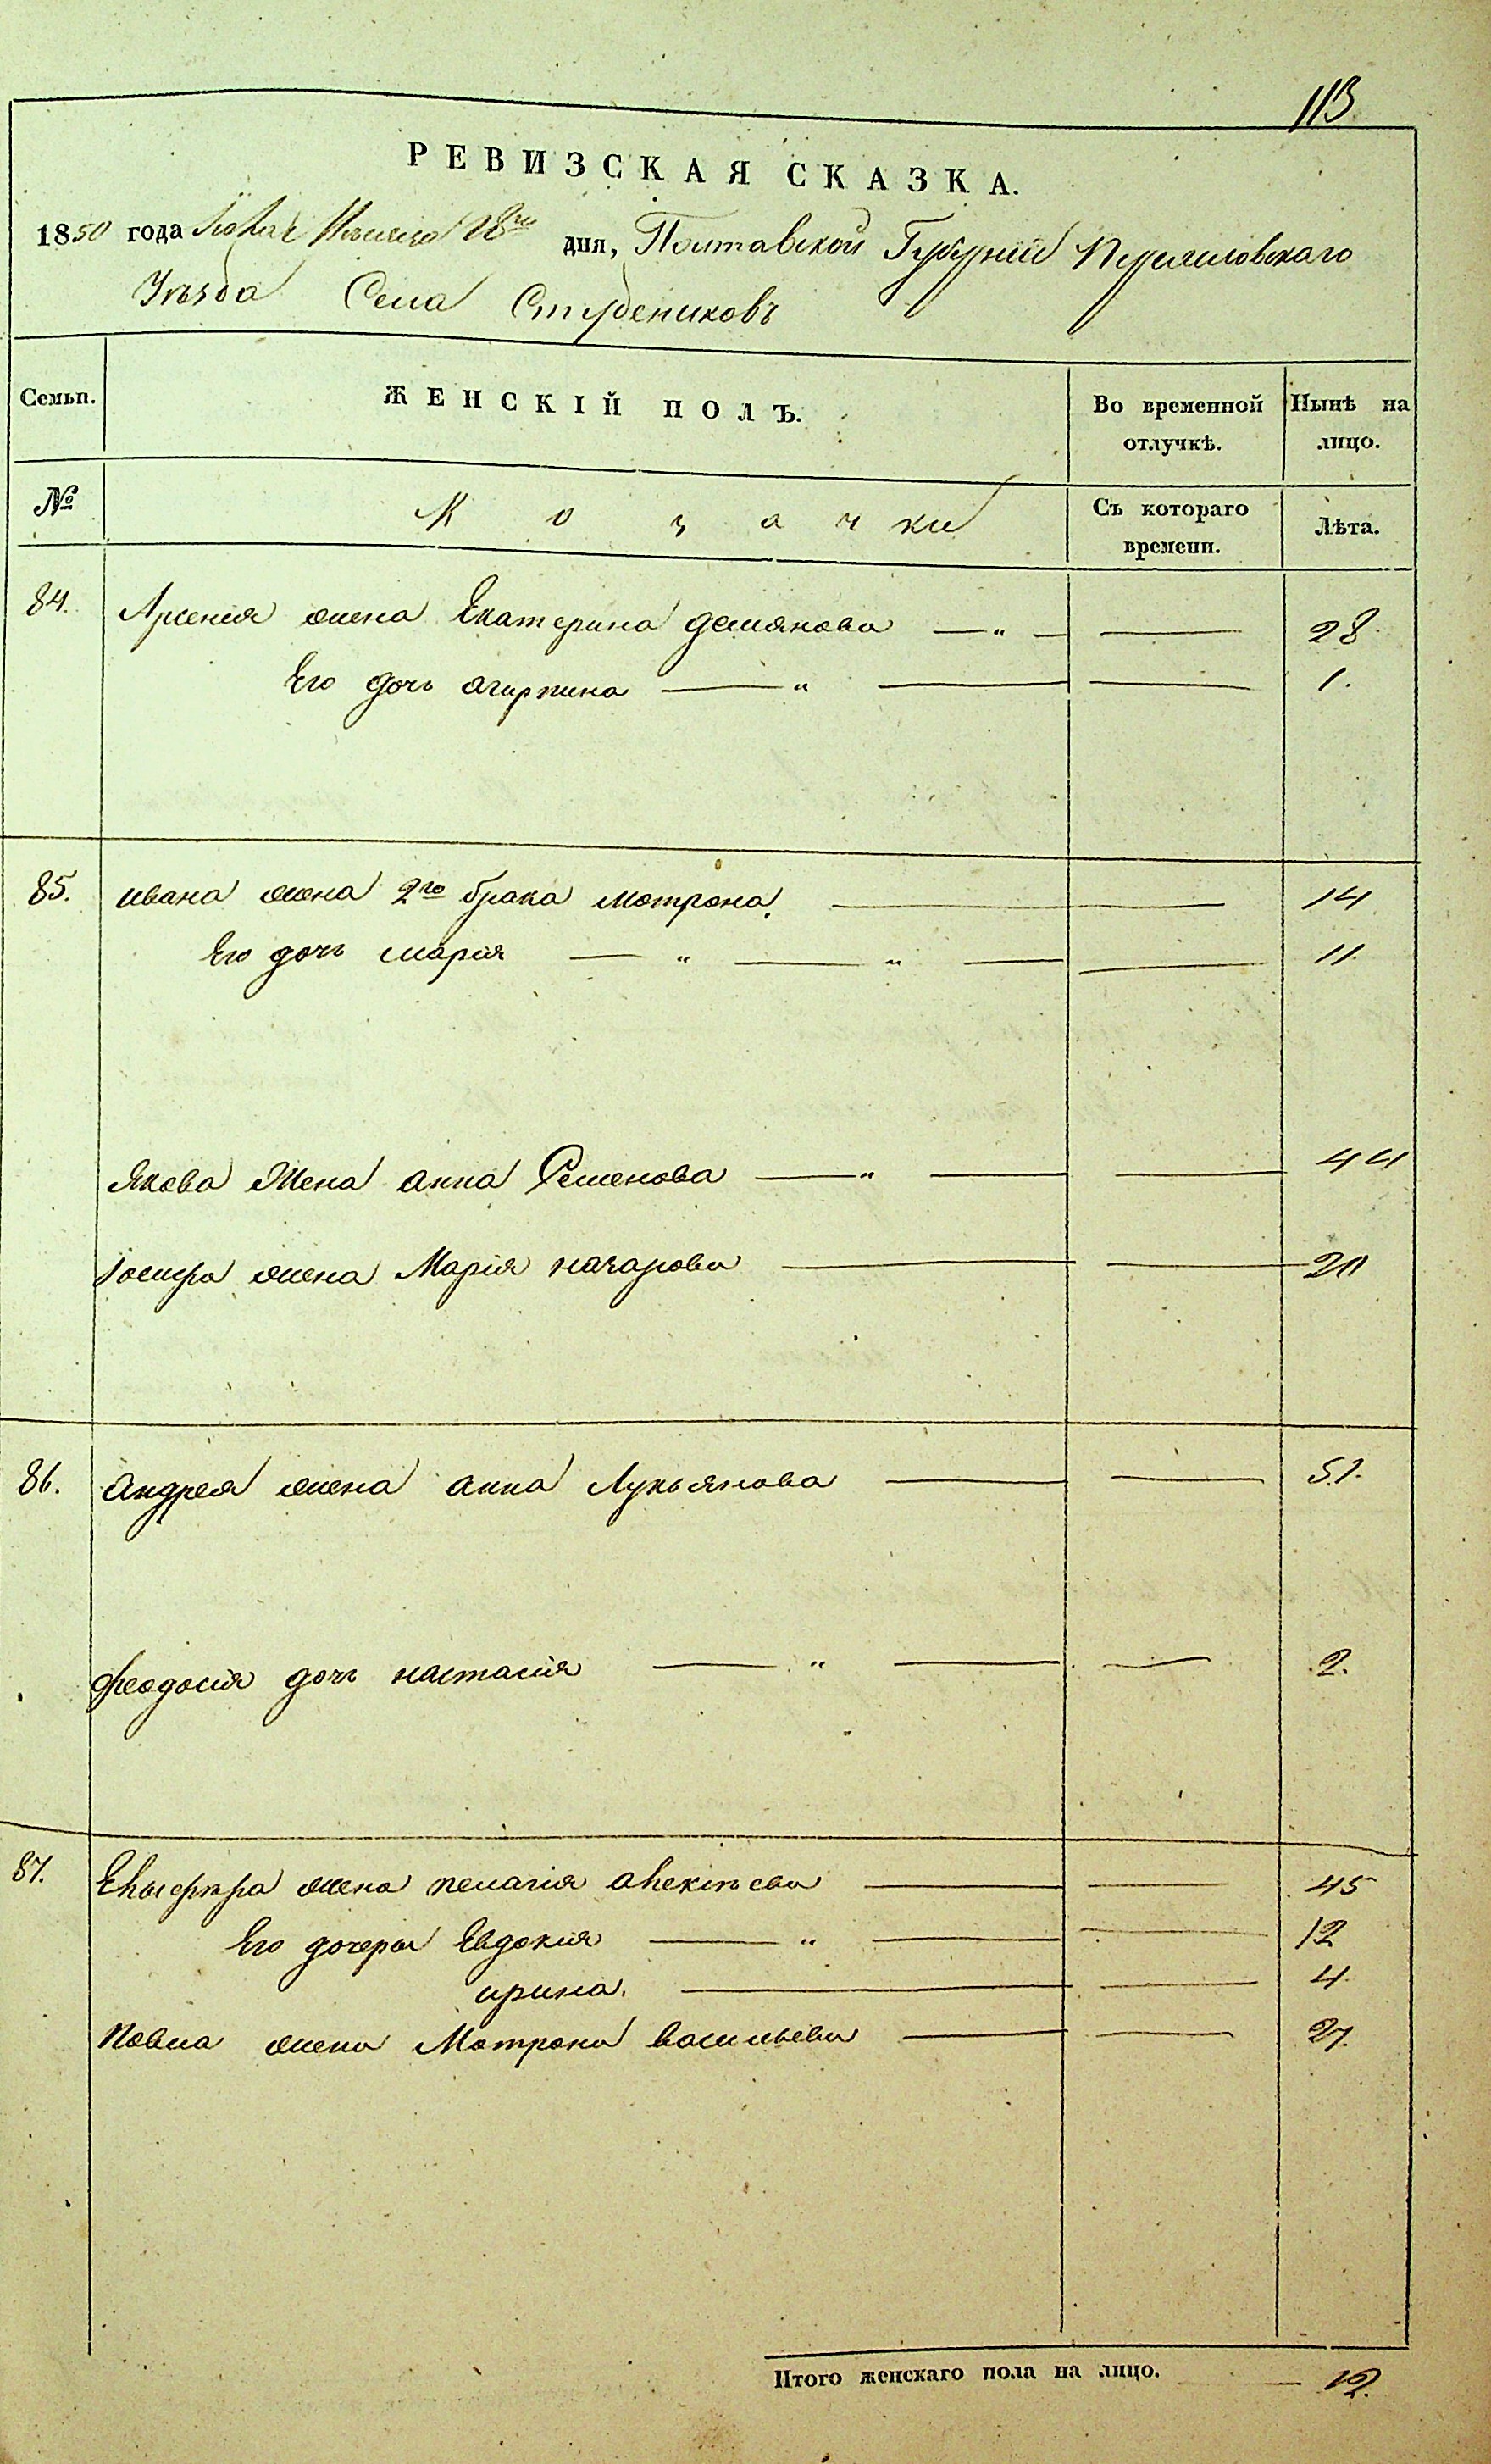 113
РЕВИЗСКАЯ СКАЗКА.
1850 года Мѣсяца 28го дня, Полтавской Губерніи Переясловскаго
Уѣзда Села Студениковъ
Семьи. ЖЕНСКІЙ ПОЛЪ. Во временной отлучкѣ. Нынѣ на лицо.
№ Козачки Съ котораго времени. Лѣта.
84. Арсенія жена Екатерина демянова — „ — — 28
Его дочь агирпина — „ — — 1.
85. ивана жена 2го брака мотрона. — — 44
Его дочь марія — „ — „ — — 11.
Якова Жена анна Семенова — „ — — 44
Іосифа жена Марія назарова — — 20
86. андрея жена анна Лукьянова — — 51.
феодосія дочь настасія — „ — — 2.
87. жена пелагія алексѣева — — 45
Его дочеры Евдокія — „ — — 12
ирина. — — 4.
Павла жена Мотрона васильева — — 27.
Итого женскаго пола на лицо. — 12.